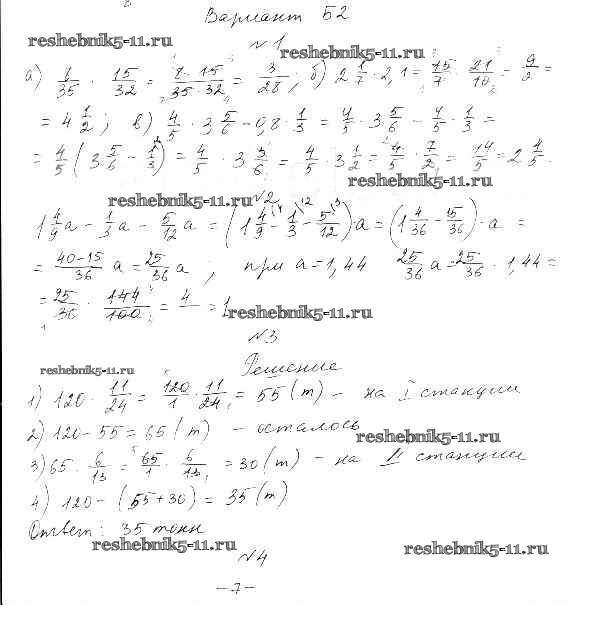 Вариант Б2
reshebnik5-11.ru
№1
reshebnik5-11.ru
а) 8/35 · 15/32 = 8·15/35·32 = 3/28; б) 2 1/7 · 2,1 = 15/7 · 21/10 = 9/2 =
= 4 1/2; в) 4/5 · 3 5/6 - 0,8 · 1/3 = 4/5 · 3 5/6 - 4/5 · 1/3 =
= 4/5 (3 5/6 - 1/3) = 4/5 · 3 3/6 = 4/5 · 3 1/2 = 4/5 · 7/2 = 14/5 = 2 4/5.
reshebnik5-11.ru
reshebnik5-11.ru
№2
1 4/9 a - 1/3 a - 5/12 a = (1 4/9 - 1/3 - 5/12)·a = (1 4/36 - 15/36)·a =
= 40-15/36 a = 25/36 a; при a = 1,44 25/36 a = 25/36 · 1,44 =
= 25/36 · 144/100 = 4/ = 1
reshebnik5-11.ru
№3
reshebnik5-11.ru
Решение
1) 120 · 11/24 = 120/1 · 11/24 = 55 (т) - на I станции
2) 120 - 55 = 65 (т) - осталось
reshebnik5-11.ru
3) 65 · 6/13 = 65/1 · 6/13 = 30 (т) - на II станции
4) 120 - (55 + 30) = 35 (т)
Ответ: 35 тонн
reshebnik5-11.ru
reshebnik5-11.ru
№4
-7-